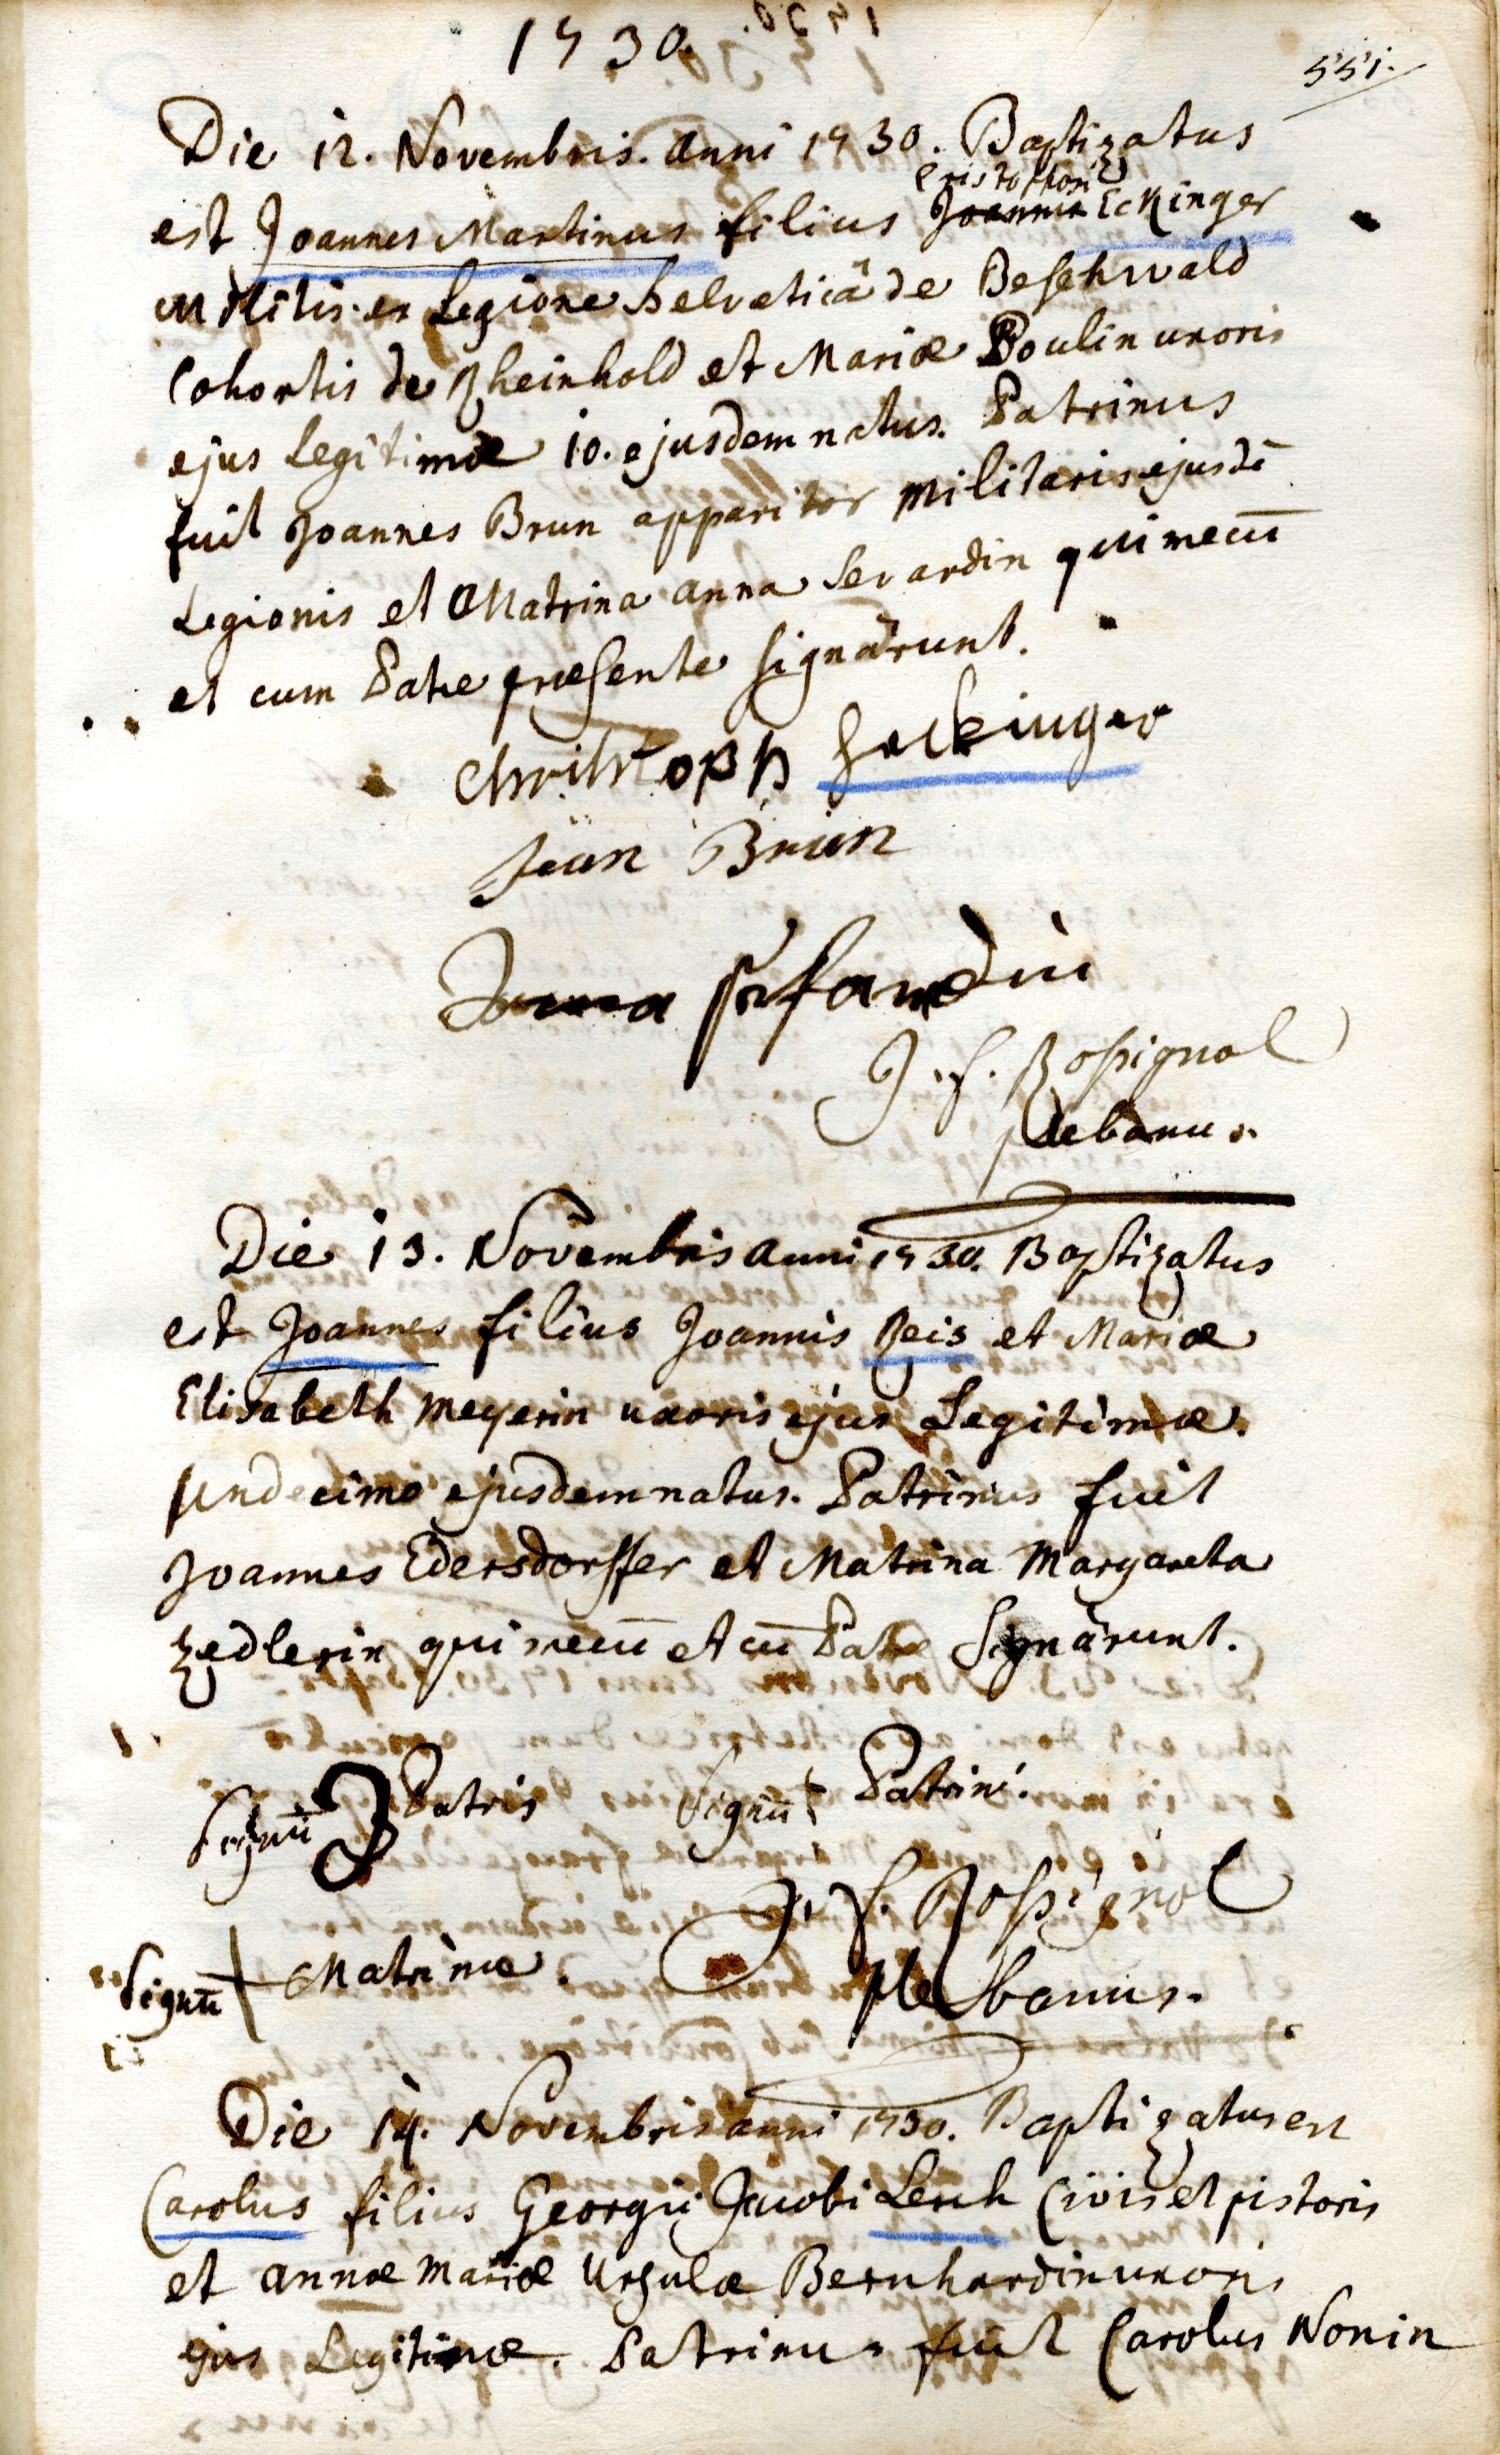 1730.
551.
Die 12. Novembris. anni 1730. Baptizatus
Cristophori
est Joannes Martinus filius Joannis Eckinger
Militis ex Legione helveticâ de Besehwald
Cohortis de Rheinhold et Mariæ Poulin uxoris
ejus Legitimæ 10. ejusdem natus. Patrinus
fuit Joannes Brun apparitor militaris ejusdē
Legionis et Matrina anna Sevardin qui mecū
et cum Patre præsente signârunt.
Christoph Heckinger
Jean Brun
Anna
J. f. Rossignol
plebanus.
Die 13. Novembris anni 1730. Baptizatus
est Joannes filius Joannis Reis et Mariæ
Elisabeth Meyerin uxoris ejus Legitimæ.
undecimo ejusdem natus. Patrinus fuit
Joannes Edersdorffer et Matrina Margareta
Zedlerin qui mecū et cū Patre Signârunt.
Signū Patris Signū Patrini.
J. f. Rossignol
Signū Matrinæ.
plebanus.
Die 14. Novembris anni 1730. Baptizatus est
Carolus filius Georgii Jacobi Lerch Civis et pistoris
et annæ Mariæ Ursulæ Bernhardin uxoris
ejus Legitimæ. Patrinus fuit Carolus Nonin